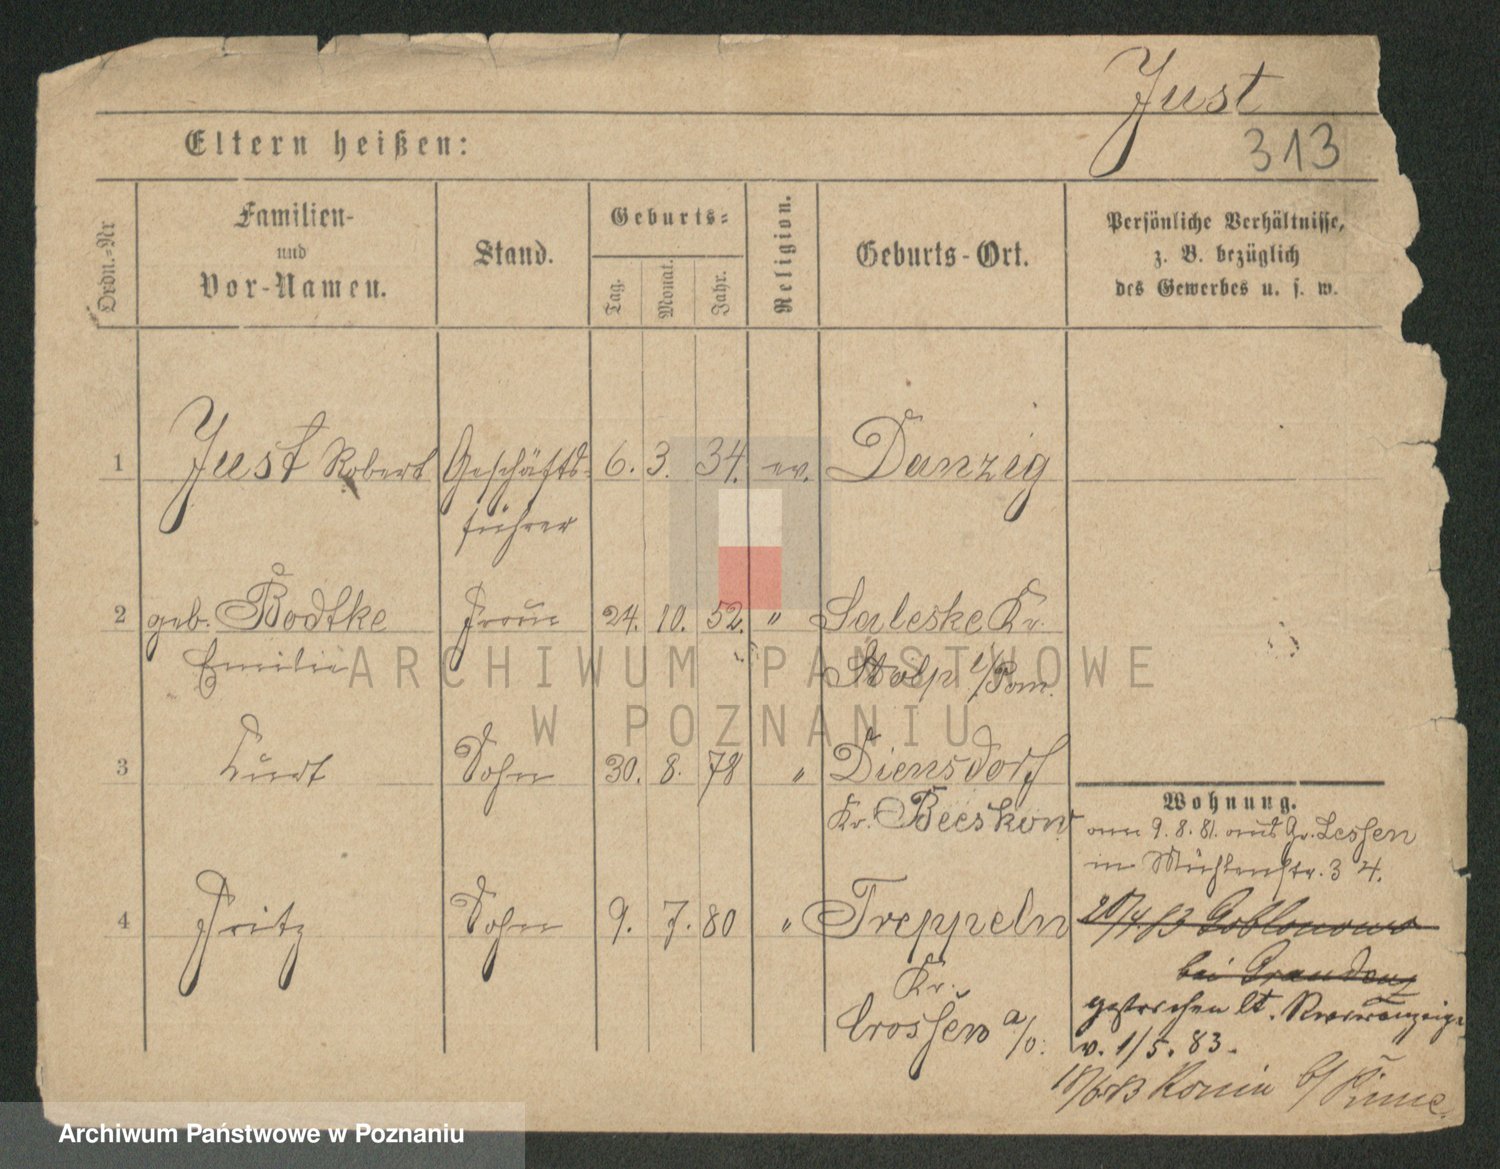 Just
Eltern heißen:
313
Ordn.-Nr
Familien-
und
Vor-Namen.
Stand.
Geburts-
Tag.
Monat.
Jahr.
Religion.
Geburts-Ort.
Persönliche Verhältnisse,
z. B. bezüglich
des Gewerbes u. s. w.
1 Just Robert Geschäfts- 6. 3. 34. ev. Danzig
führer
2 geb. Bodtke Frau 24. 10. 52. " Saleske Kr.
Emilie Stolp i/Pom.
3 Kurt Sohn 30. 8. 78 " Diensdorf
Kr. Beeskow
Wohnung.
am 9. 8. 81. aus Gr. Lessen
in Mühlenstr. 3 4.
4 Fritz Sohn 9. 7. 80 " Treppeln
Kr.
Crossen a/O.
20/4 83 Goblonowo
bei Graudenz
gestrichen lt.
v. 1/5. 83.
Konin b/ Pinne
ARCHIWUM PAŃSTWOWE
W POZNANIU
Archiwum Państwowe w Poznaniu